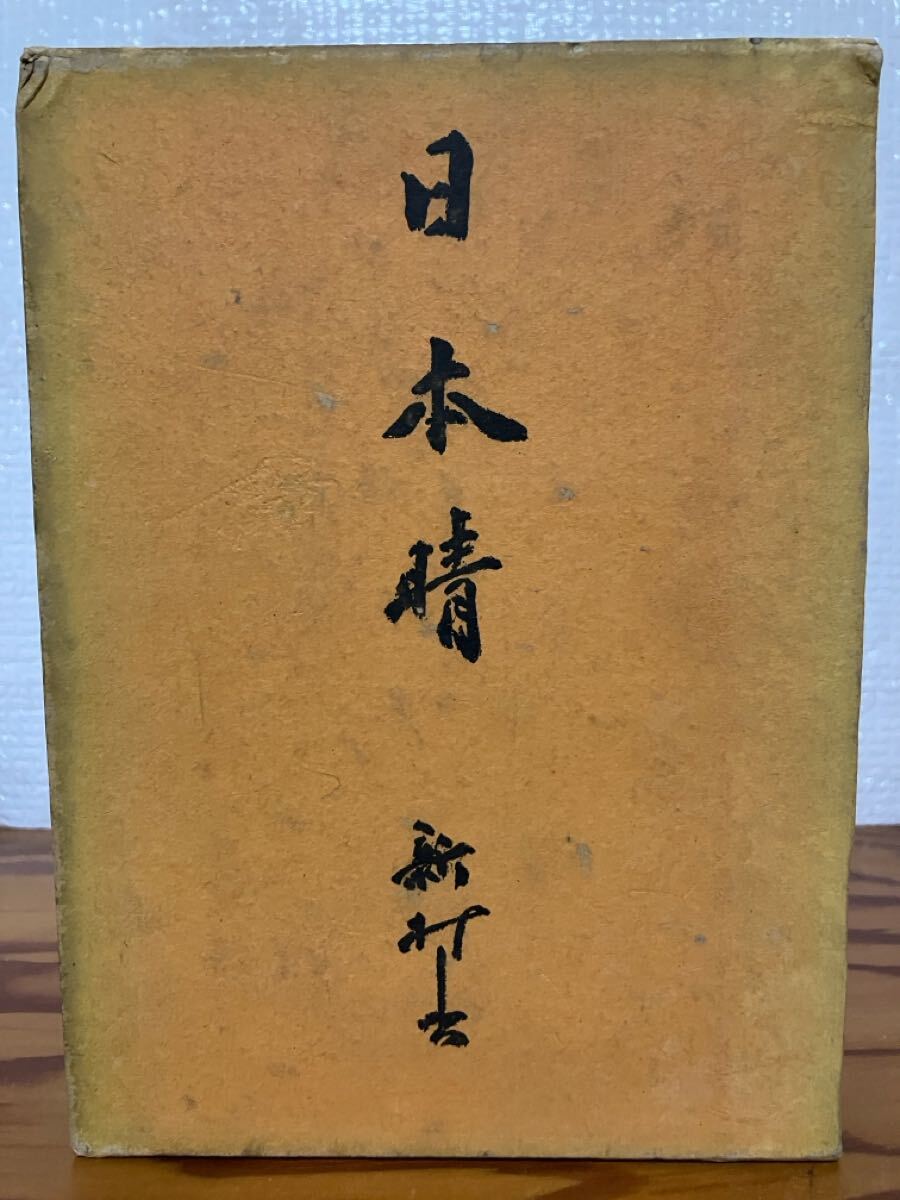 日本晴
新村出